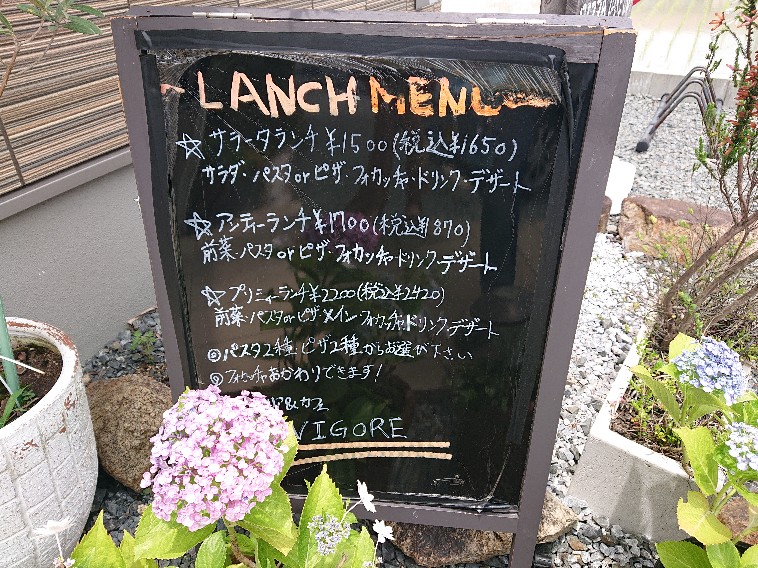 LANCH MENU
☆サラータランチ ¥1500(税込¥1650)
サラダ・パスタorピザ・フォカッチャ・ドリンク・デザート
☆アンティーランチ¥1700(税込¥1870)
前菜・パスタorピザ・フォカッチャ・ドリンク・デザート
☆プリミィーランチ¥2200(税込¥2420)
前菜・パスタorピザ・メイン・フォカッチャ・ドリンク・デザート
◎パスタ2種、ピザ2種からお選び下さい
◎フォカッチャおかわりできます!
&カフェ
VIGORE